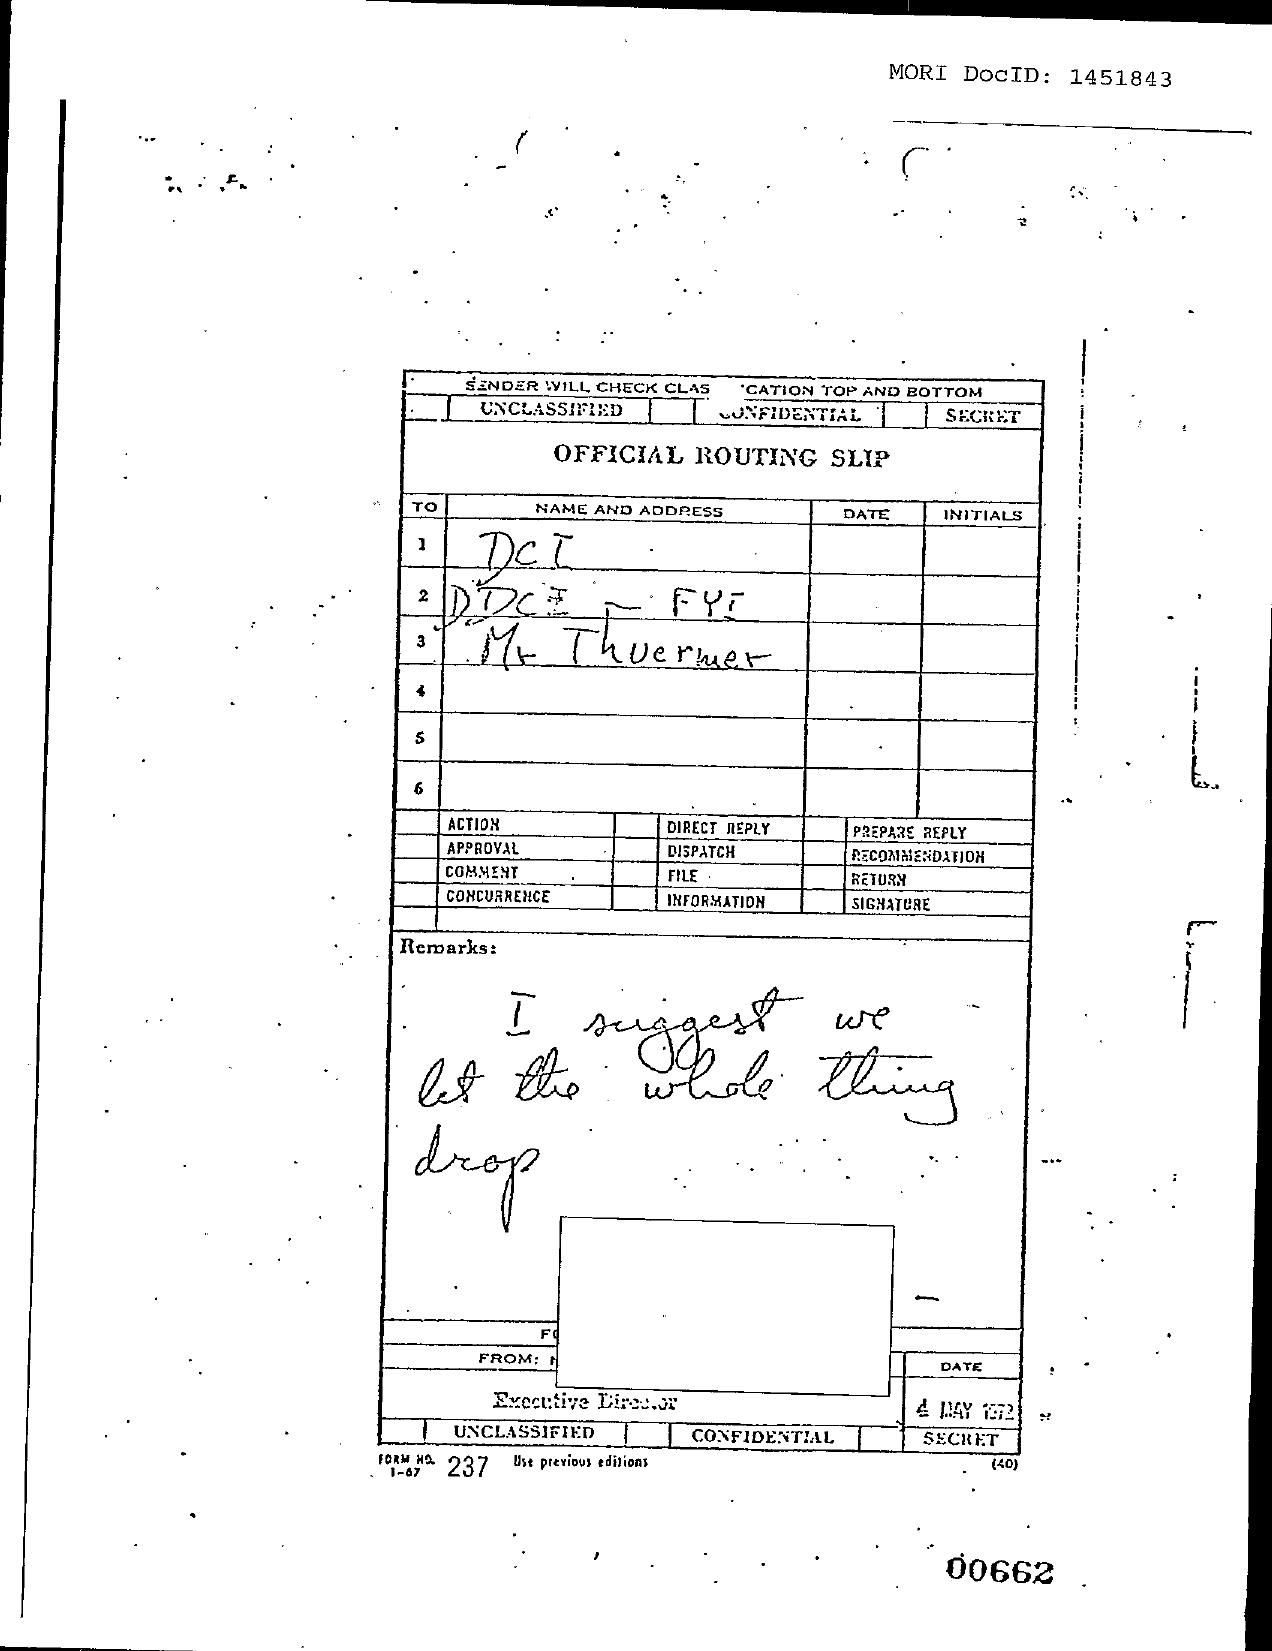 MORI DocID: 1451843
SENDER WILL CHECK CLAS 'CATION TOP AND BOTTOM
UNCLASSIFIED CONFIDENTIAL SECRET
OFFICIAL ROUTING SLIP
TO NAME AND ADDRESS DATE INITIALS
1 DCI
2 DDCI — FYI
3 Mr Thuermer
4
5
6
ACTION DIRECT REPLY PREPARE REPLY
APPROVAL DISPATCH RECOMMENDATION
COMMENT FILE RETURN
CONCURRENCE INFORMATION SIGNATURE
Remarks:
I suggest we
let the whole thing
drop
FO
FROM:
DATE
Executive Director
4 MAY 1972
UNCLASSIFIED CONFIDENTIAL SECRET
FORM NO. 1-67 237 Use previous editions (40)
00662